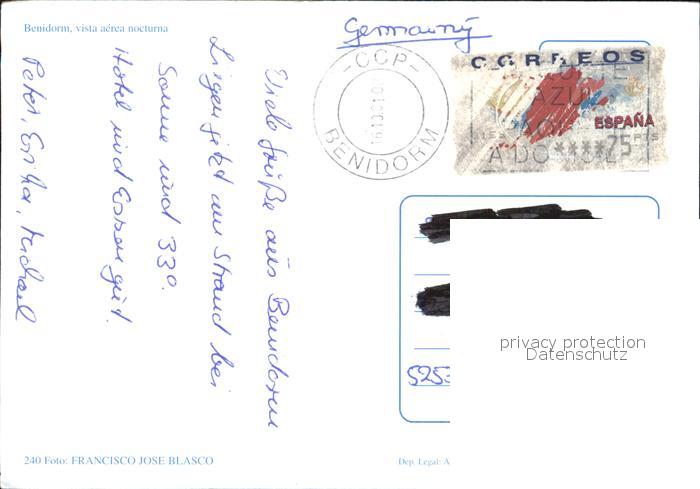 Benidorm, vista aérea nocturna
Germany
-CCP-
BENIDORM
CORREOS
ESPAÑA
****75 PTS
Viele Grüße aus Benidorm
Liegen jetzt am Strand bei
Sonne und 33°.
Hotel und Essen gut.
Peter, Erika, Michael
privacy protection
Datenschutz
240 Foto: FRANCISCO JOSE BLASCO
Dep. Legal: A